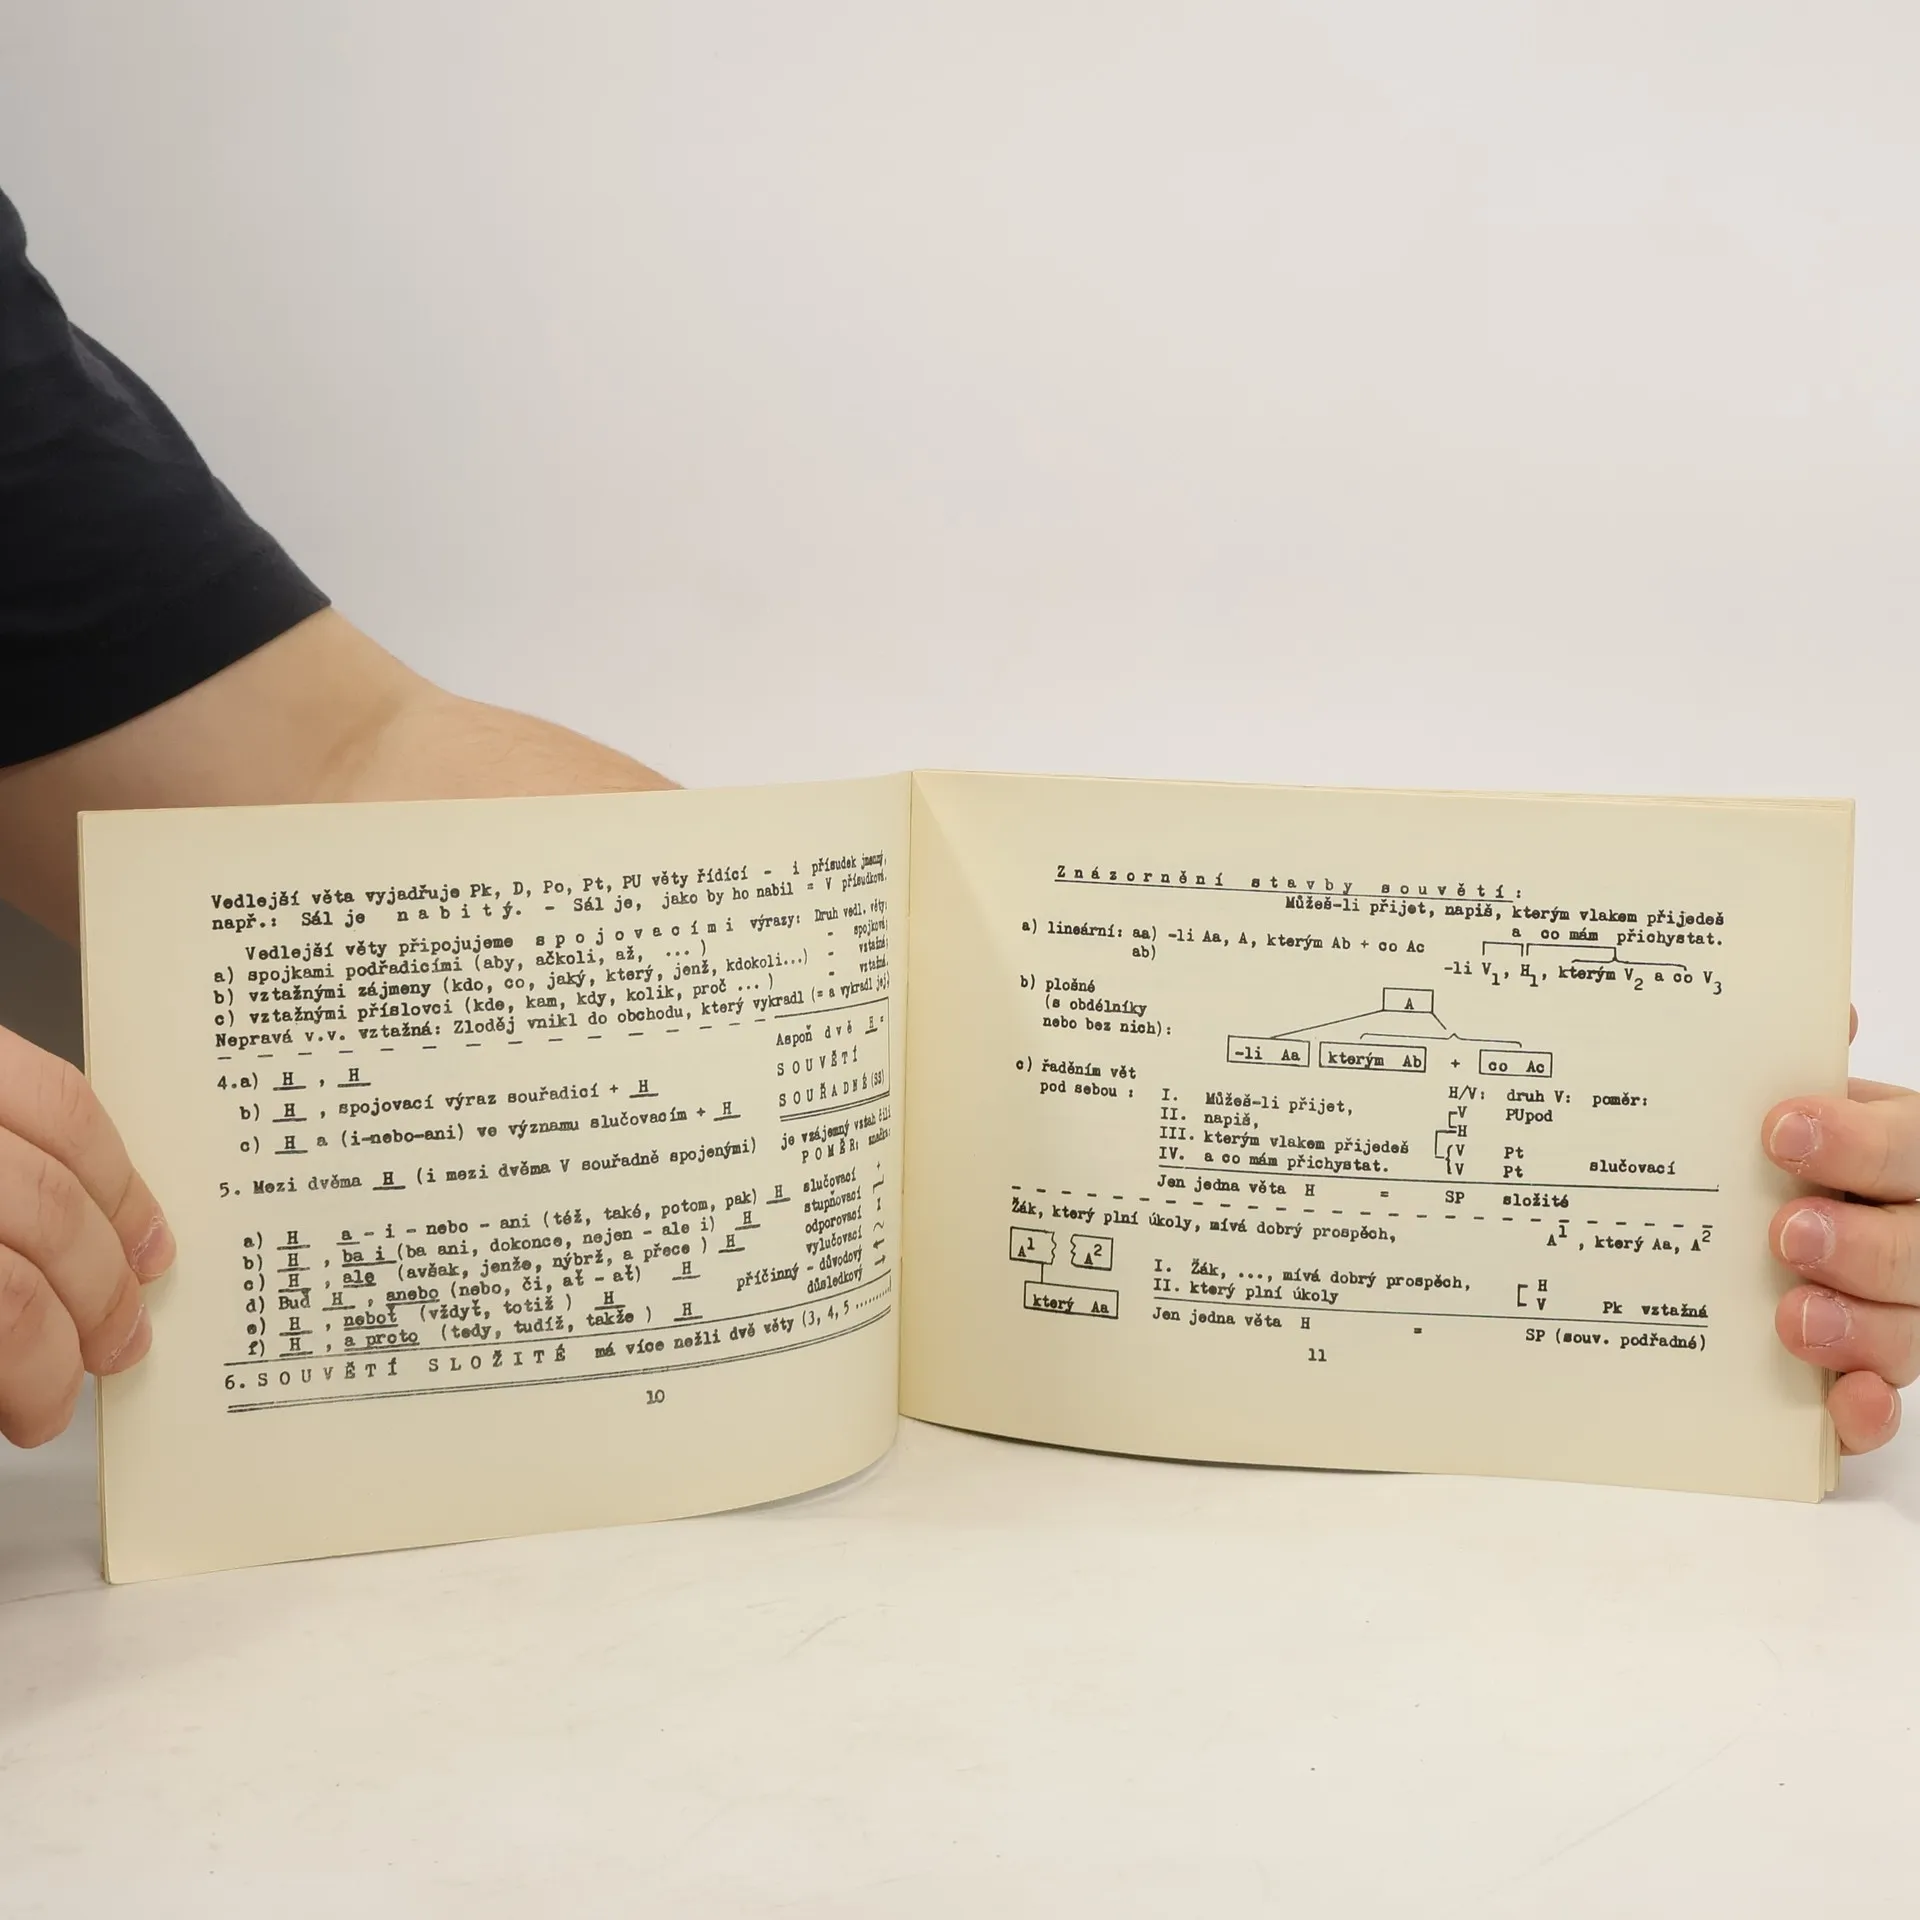 Vedlejší věta vyjadřuje Pk, D, Po, Pt, PU věty řídící - i přísudek jmenný,
např.: Sál je n a b i t ý. - Sál je, jako by ho nabil = V přísudková.
Vedlejší věty připojujeme s p o j o v a c í m i výrazy: Druh vedl. věty:
a) spojkami podřadicími (aby, ačkoli, až, ... ) - spojková;
b) vztažnými zájmeny (kdo, co, jaký, který, jenž, kdokoli...) - vztažná;
c) vztažnými příslovci (kde, kam, kdy, kolik, proč ... ) - vztažná.
Nepravá v.v. vztažná: Zloděj vnikl do obchodu, který vykradl (= a vykradl jej)
4.a) H , H Aspoň d v ě H :
b) H , spojovací výraz souřadicí + H S O U V Ě T Í
c) H a (i-nebo-ani) ve významu slučovacím + H S O U Ř A D N É (SS)
5. Mezi dvěma H (i mezi dvěma V souřadně spojenými) je vzájemný vztah čili
P O M Ě R: značka:
a) H a - i - nebo - ani (též, také, potom, pak) H slučovací +
b) H , ba i (ba ani, dokonce, nejen - ale i) H stupňovací
c) H , ale (avšak, jenže, nýbrž, a přece ) H odporovací
d) Buď H , anebo (nebo, či, ať - ať) H vylučovací ~
e) H , neboť (vždyť, totiž ) H příčinný - důvodový ←
f) H , a proto (tedy, tudíž, takže ) H důsledkový →
6. S O U V Ě T Í S L O Ž I T É má více nežli dvě věty (3, 4, 5 ..........
10
Z n á z o r n ě n í s t a v b y s o u v ě t í :
Můžeš-li přijet, napiš, kterým vlakem přijedeš
a co mám přichystat.
a) lineární: aa) -li Aa, A, kterým Ab + co Ac
ab) -li V1, H1, kterým V2 a co V3
b) plošné
(s obdélníky
nebo bez nich):
A
-li Aa kterým Ab + co Ac
c) řaděním vět
pod sebou :
H/V: druh V: poměr:
I. Můžeš-li přijet, V PUpod
II. napiš, H
III. kterým vlakem přijedeš V Pt
IV. a co mám přichystat. V Pt slučovací
Jen jedna věta H = SP složité
Žák, který plní úkoly, mívá dobrý prospěch, A1 , který Aa, A2
A1 A2
který Aa
I. Žák, ..., mívá dobrý prospěch, H
II. který plní úkoly V Pk vztažná
Jen jedna věta H = SP (souv. podřadné)
11